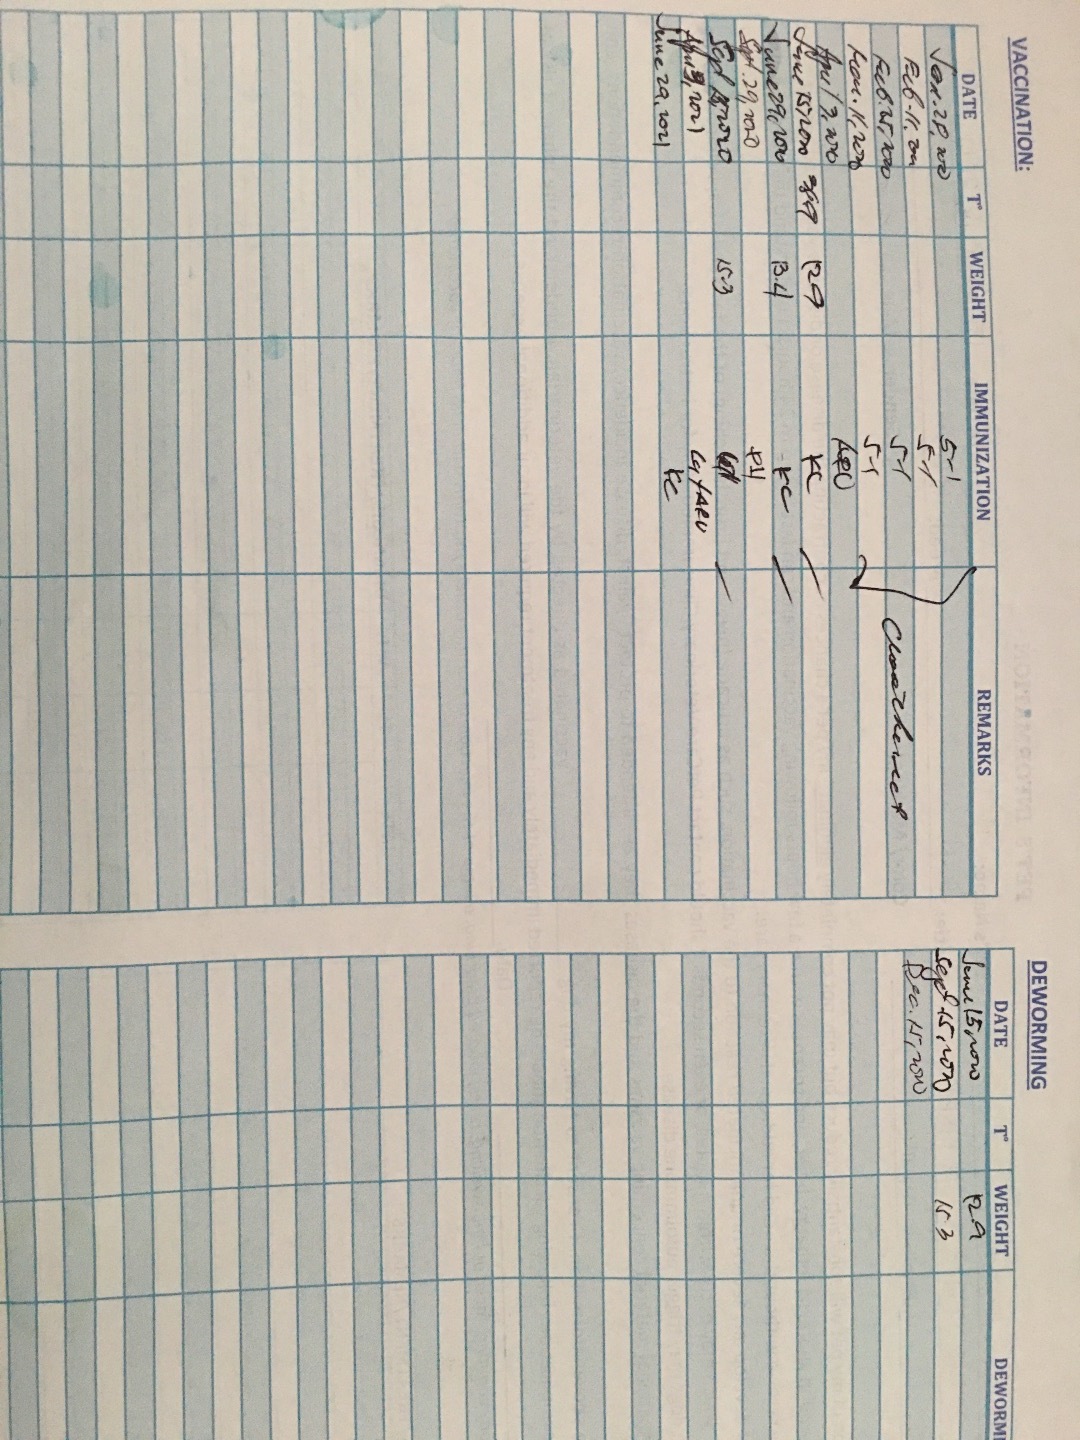 VACCINATION:
DATE T° WEIGHT IMMUNIZATION REMARKS
Jan. 28, 2020 5-1
Feb. 11, 2020 5-1
Feb. 25, 2020 5-1
Mar. 11, 2020 5-1
April 7, 2020 ARV
June 15, 2020 12.9 KC
June 29, 2020 13.4 KC
Sept. 29, 2020
Sept 15, 2020 15.3
April 2021 ARV
June 29, 2021 KC
DEWORMING
DATE T° WEIGHT DEWORMI
June 15, 2020 12.9
Sept 15, 2020 15.3
Dec. 15, 2020